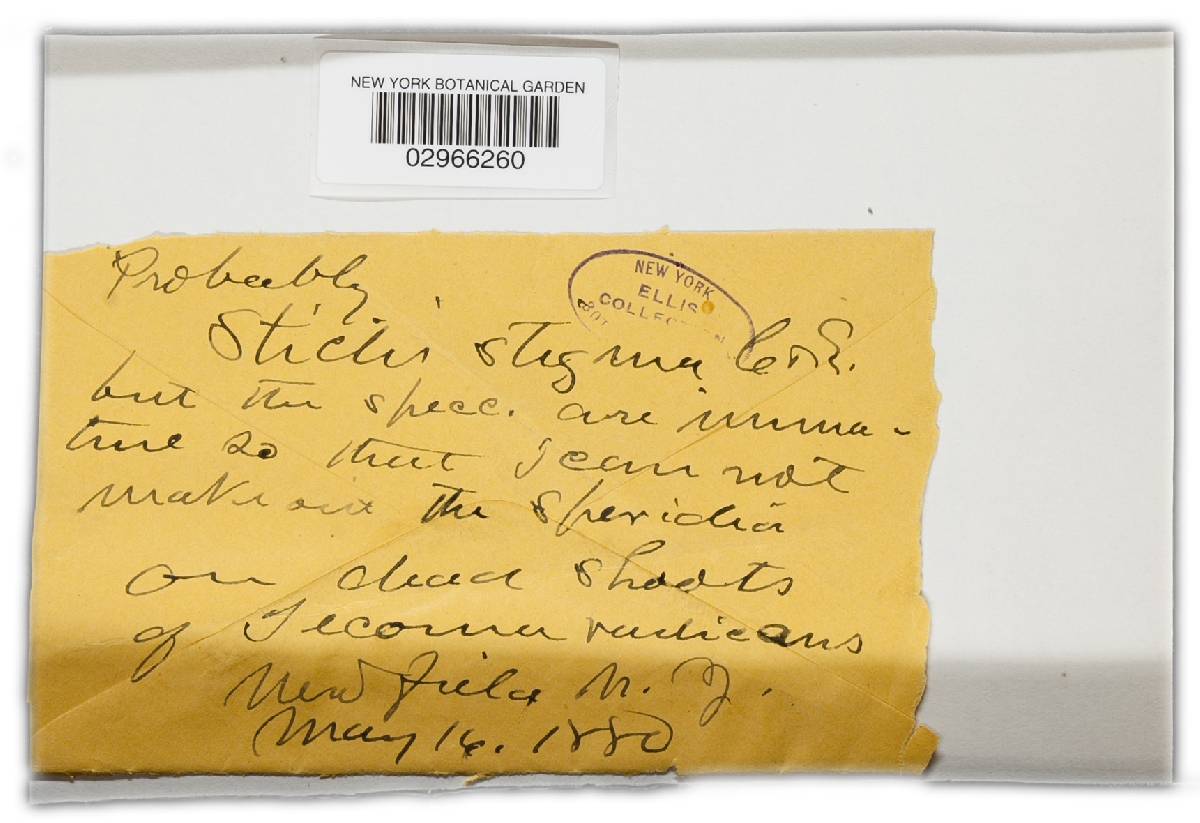 NEW YORK BOTANICAL GARDEN
02966260
NEW YORK
ELLIS
COLLECTION
BOT
Probably
Stictis stigma C & E.
but the specc. are imma-
ture so that I can not
make out the sporidia
on dead shoots
of Tecoma radicans
Newfield N. J.
May 16. 1880